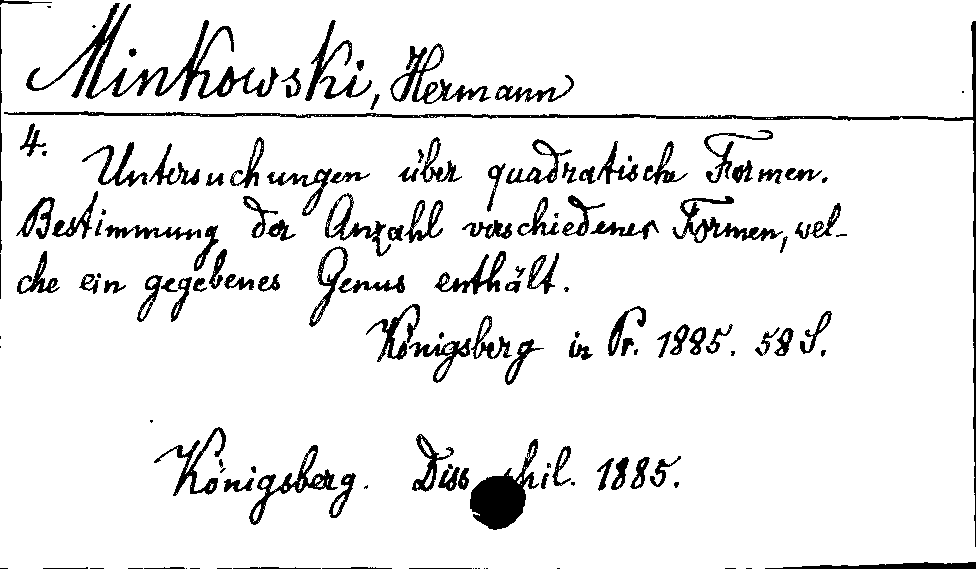 Minkowski, Hermann
4.
Untersuchungen über quadratische Formen.
Bestimmung der Anzahl verschiedener Formen, wel-
che ein gegebenes Genus enthält.
Königsberg in Pr. 1885. 58 S.
Königsberg. Diss phil. 1885.